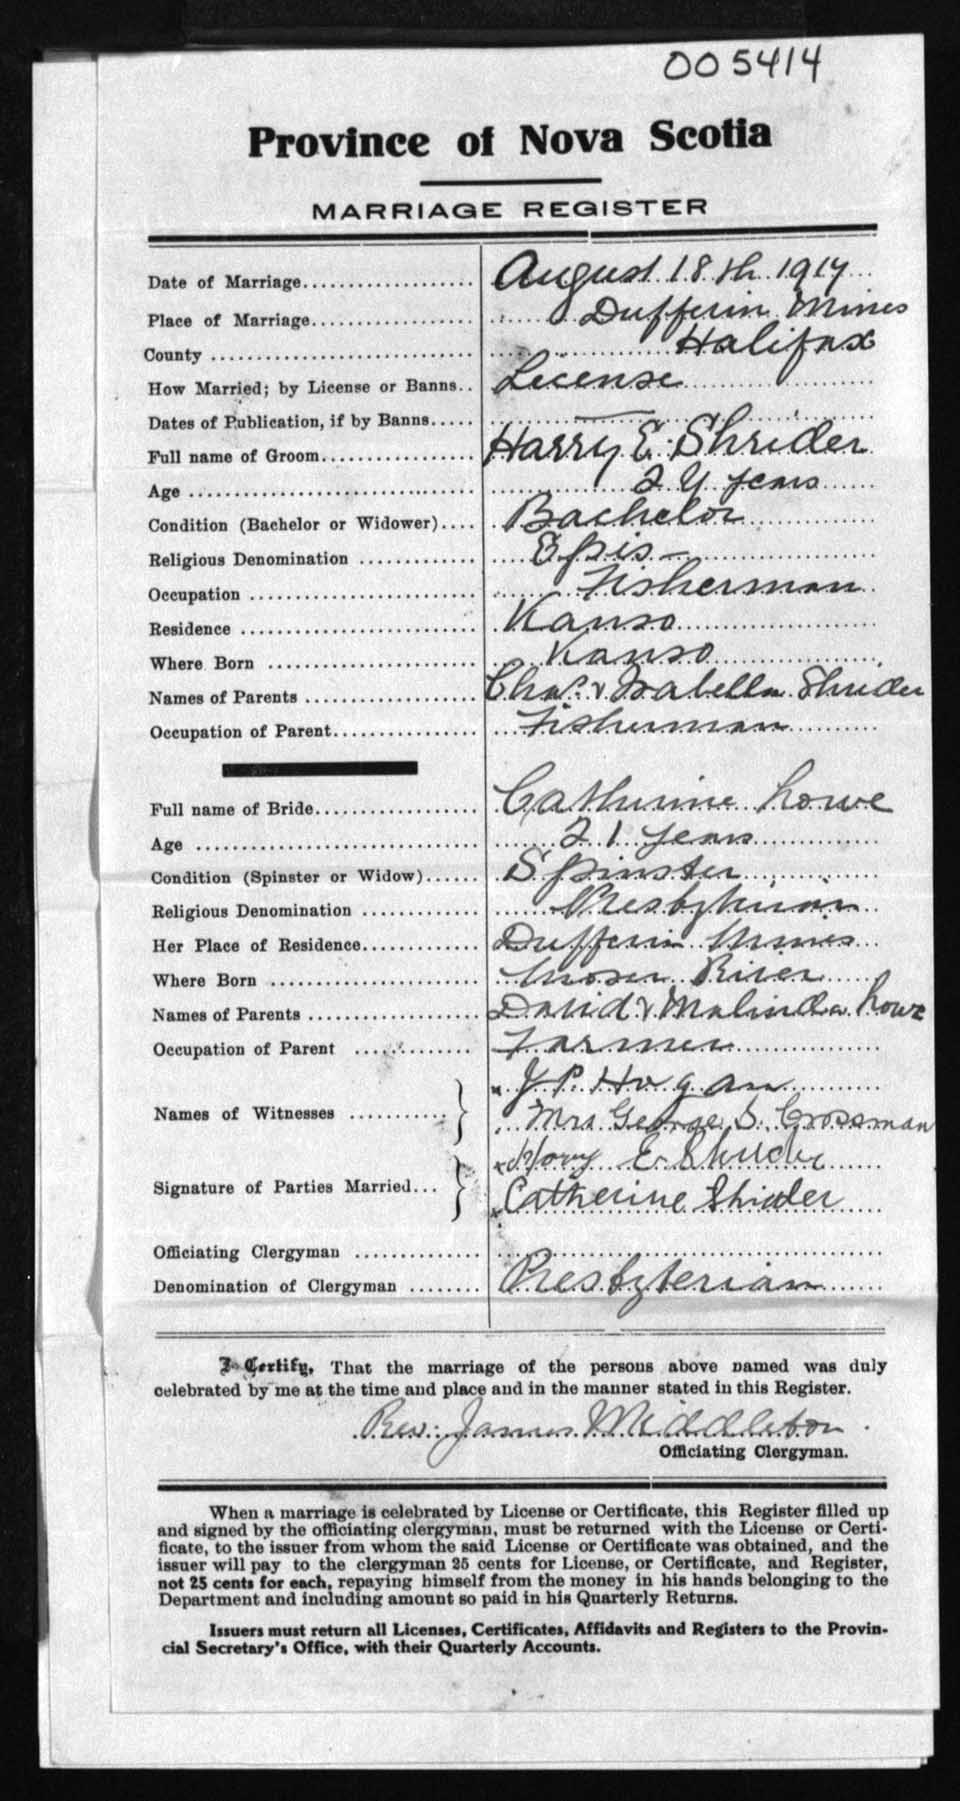 005414
Province of Nova Scotia
MARRIAGE REGISTER
Date of Marriage August 18th 1917
Place of Marriage Dufferin Mines
County Halifax
How Married; by License or Banns.. License
Dates of Publication, if by Banns —
Full name of Groom Harry E. Shrider
Age years
Condition (Bachelor or Widower) Bachelor
Religious Denomination Epis—
Occupation Fisherman
Residence Kanso
Where Born Kanso
Names of Parents Chas. & Isabella Shrider
Occupation of Parent Fisherman
Full name of Bride Catherine Lowe
Age 21 years
Condition (Spinster or Widow) Spinster
Religious Denomination Presbyterian
Her Place of Residence Dufferin Mines
Where Born Moser River
Names of Parents David & Malinda Lowe
Occupation of Parent Farmer
Names of Witnesses x J P. Hogan
Mrs George S. Crossman
Signature of Parties Married... x E Shrider
x Catherine Shrider
Officiating Clergyman
Denomination of Clergyman Presbyterian
I Certify, That the marriage of the persons above named was duly
celebrated by me at the time and place and in the manner stated in this Register.
Rev. James Middleton
Officiating Clergyman.
When a marriage is celebrated by License or Certificate, this Register filled up
and signed by the officiating clergyman, must be returned with the License or Certi-
ficate, to the issuer from whom the said License or Certificate was obtained, and the
issuer will pay to the clergyman 25 cents for License, or Certificate, and Register,
not 25 cents for each, repaying himself from the money in his hands belonging to the
Department and including amount so paid in his Quarterly Returns.
Issuers must return all Licenses, Certificates, Affidavits and Registers to the Provin-
cial Secretary's Office, with their Quarterly Accounts.